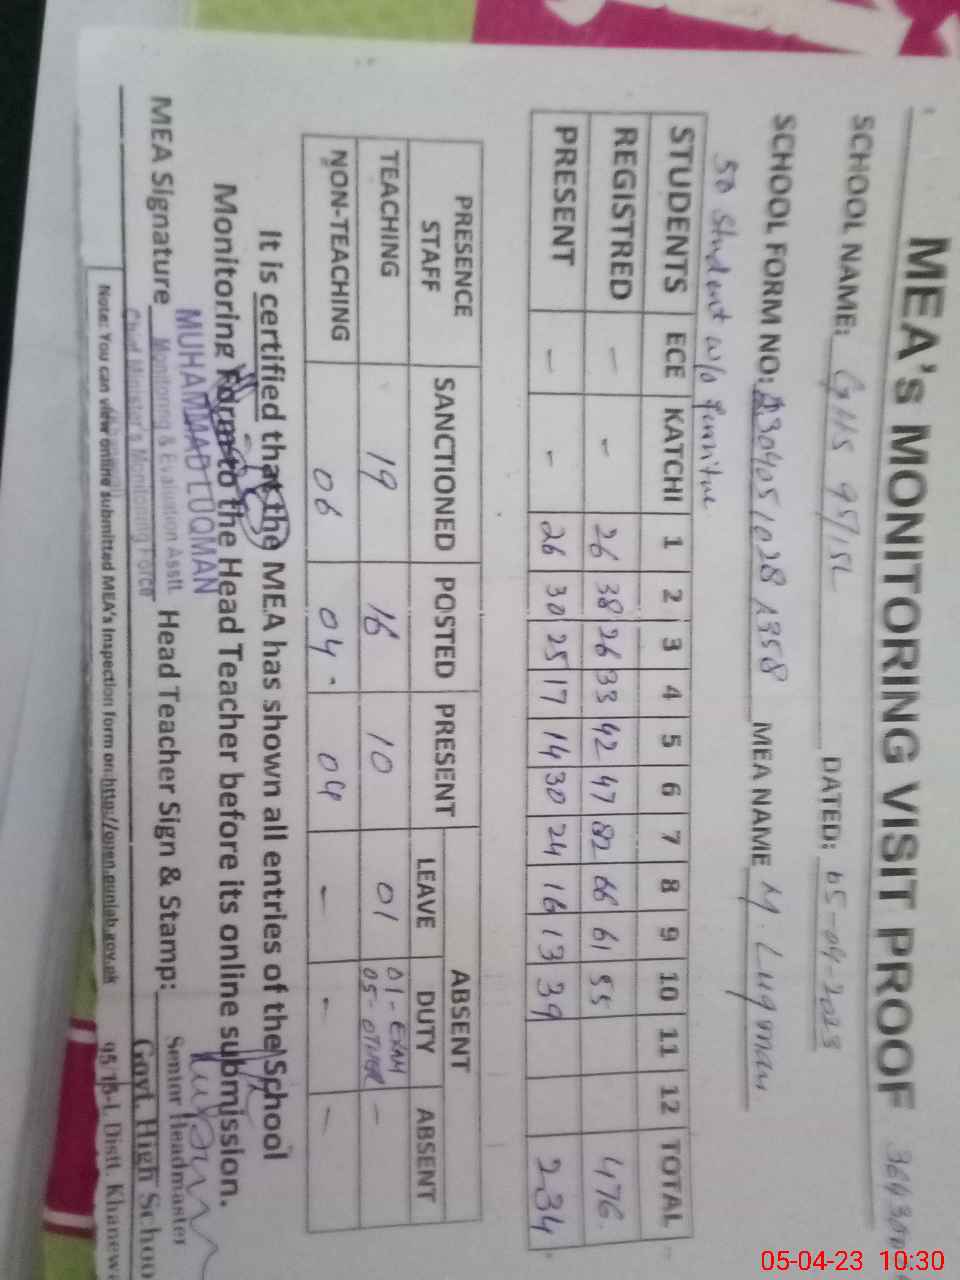 MEA's MONITORING VISIT PROOF
SCHOOL NAME: GHS 95/15L DATED: 05-04-2023
SCHOOL FORM NO: MEA NAME M. Luqman
50 Student w/o furnitue
STUDENTS ECE KATCHI 1 2 3 4 5 6 7 8 9 10 11 12 TOTAL
REGISTRED - - 26 38 26 33 42 47 82 66 61 55 476
PRESENT - - 26 30 25 17 14 30 24 16 13 39 234
PRESENCE STAFF SANCTIONED POSTED PRESENT ABSENT
LEAVE DUTY ABSENT
TEACHING 19 16 10 01 01-EXAM 05-OTHER -
NON-TEACHING 06 04 04 - - -
It is certified that the MEA has shown all entries of the School
Monitoring Form to the Head Teacher before its online submission.
MUHAMMAD LUQMAN
Monitoring & Evaluation Asstt.
Chief Minister's Monitoring Force
MEA Signature Head Teacher Sign & Stamp:
Senior Headmaster
Govt. High Schoo
95/15-L Distt. Khanew
Note: You can view online submitted MEA's Inspection form on:http://open.punjab.gov.pk
05-04-23 10:30